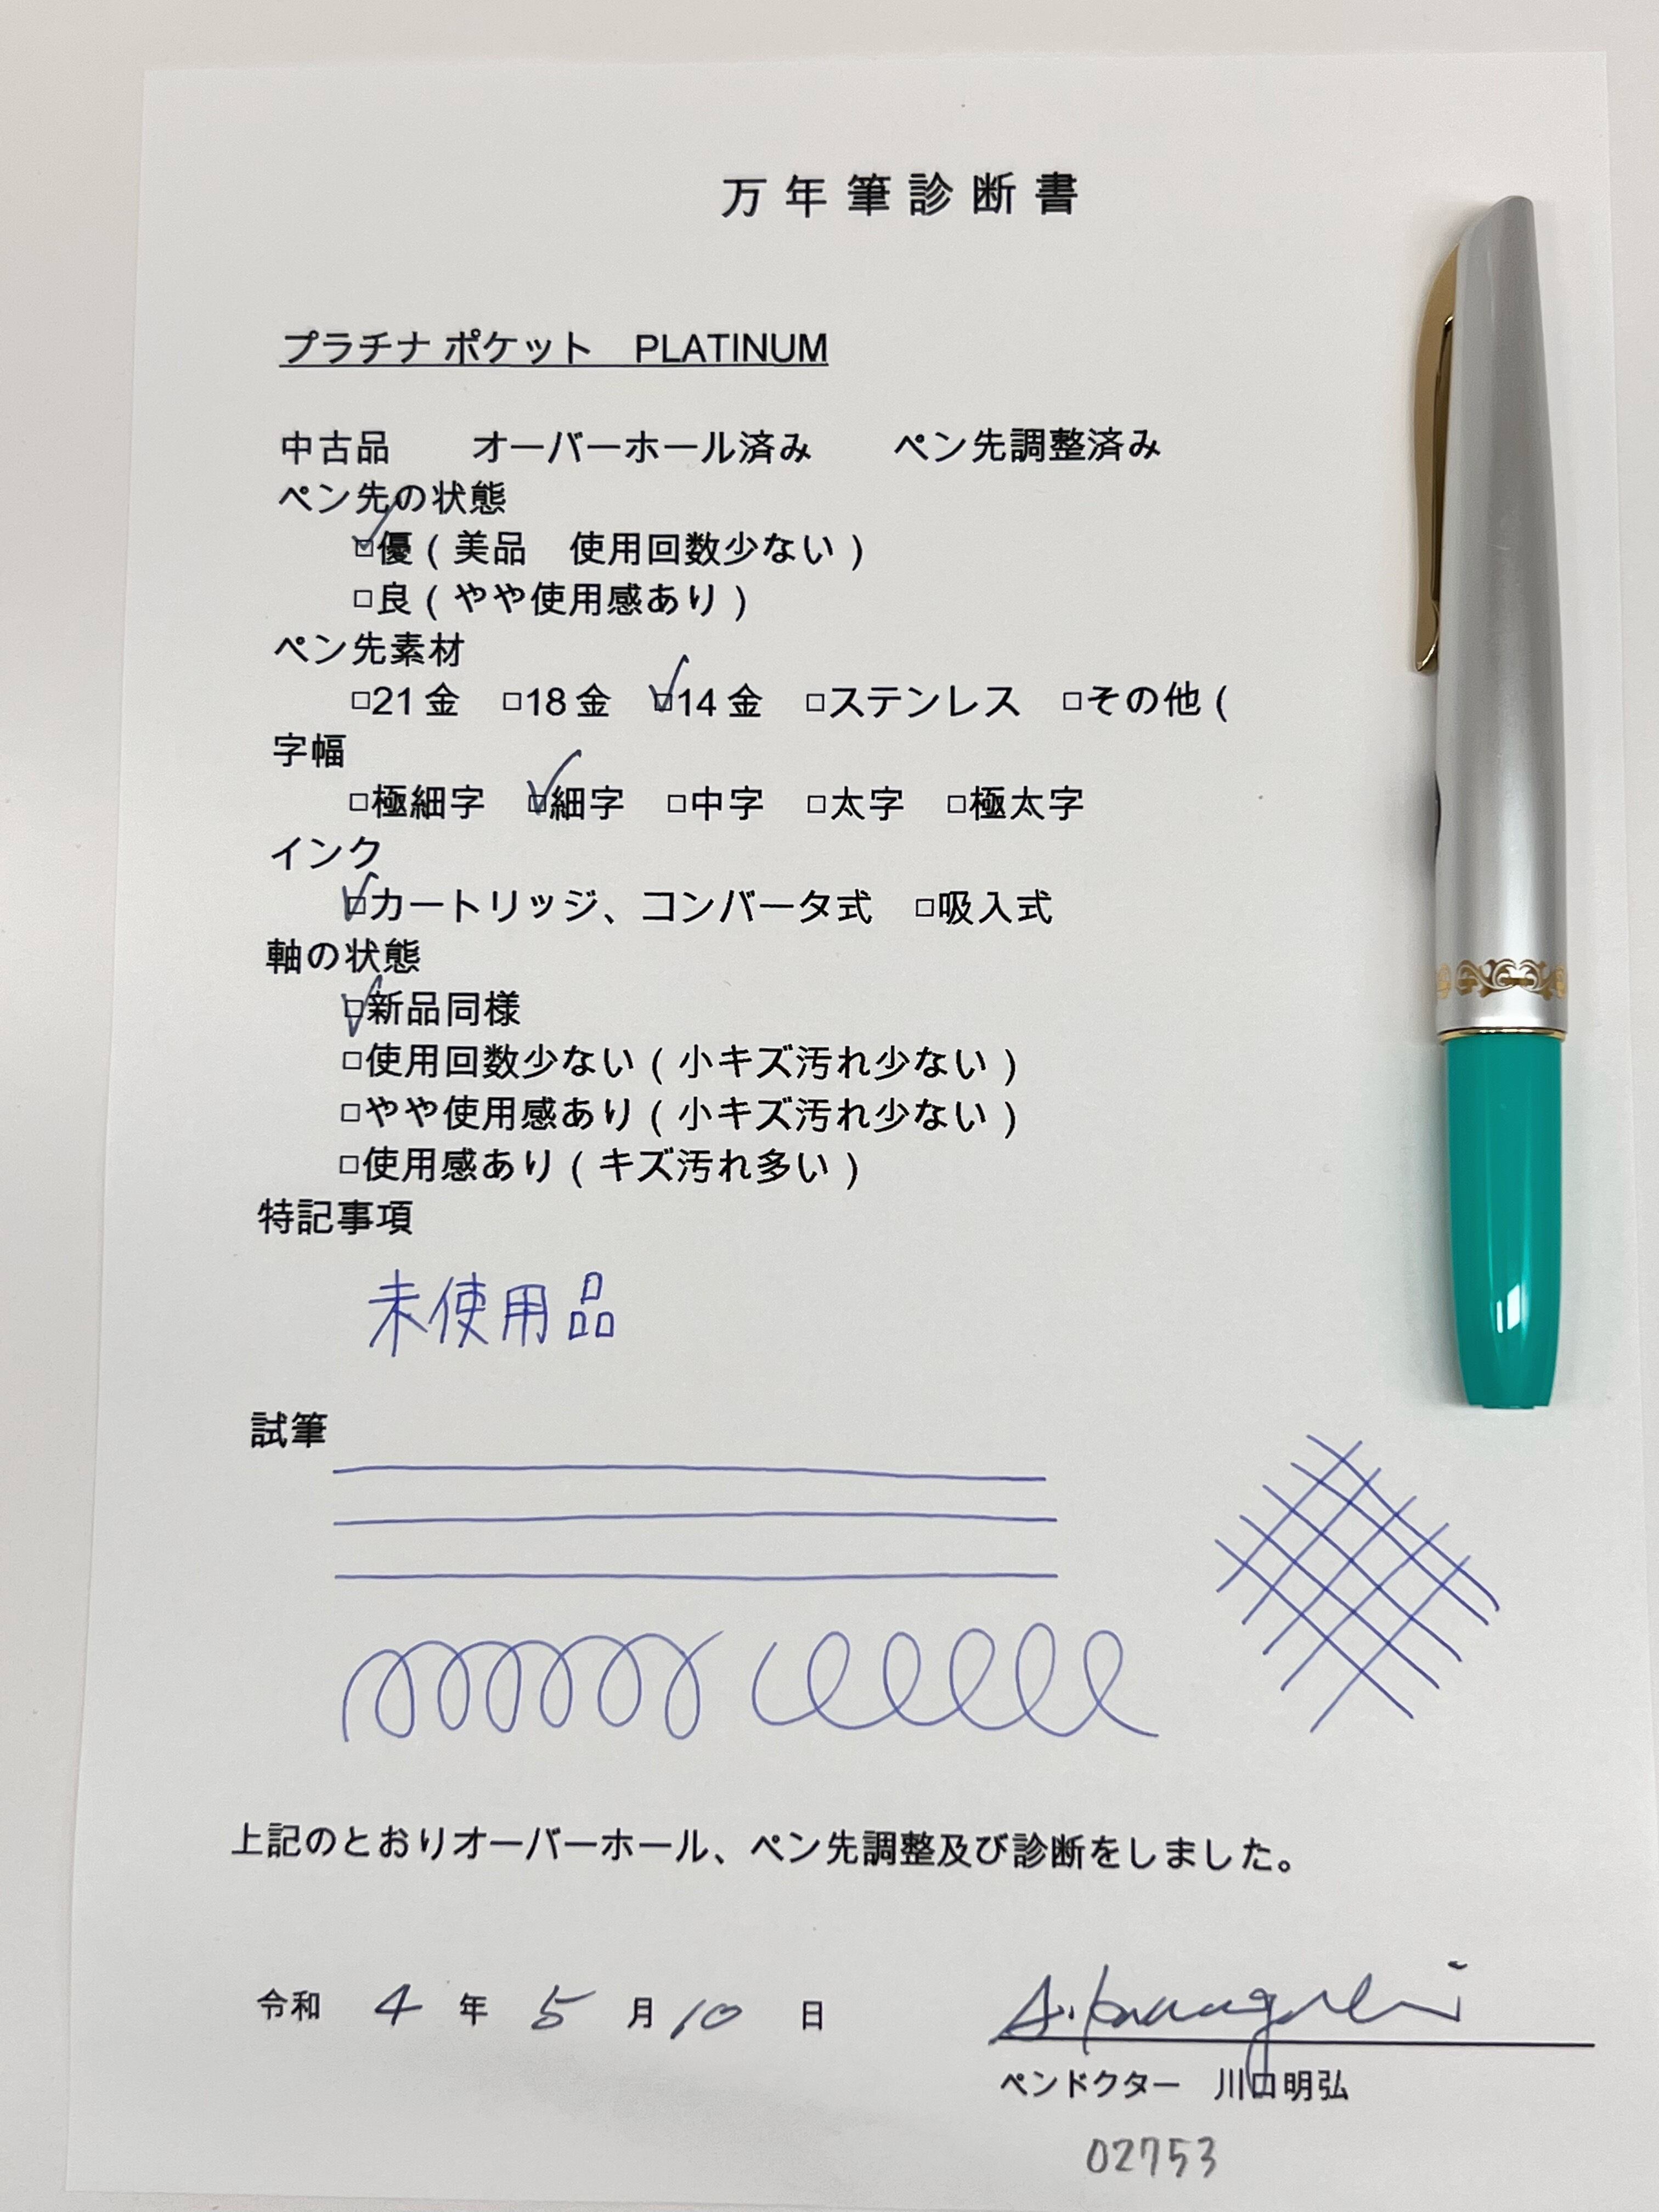 万年筆診断書
プラチナ ポケット　PLATINUM
中古品　　オーバーホール済み　　ペン先調整済み
ペン先の状態
☑優（美品　使用回数少ない）
□良（やや使用感あり）
ペン先素材
□21金　□18金　☑14金　□ステンレス　□その他（
字幅
□極細字　☑細字　□中字　□太字　□極太字
インク
☑カートリッジ、コンバータ式　□吸入式
軸の状態
☑新品同様
□使用回数少ない（小キズ汚れ少ない）
□やや使用感あり（小キズ汚れ少ない）
□使用感あり（キズ汚れ多い）
特記事項
未使用品
試筆
上記のとおりオーバーホール、ペン先調整及び診断をしました。
令和　4　年　5　月　10　日
A. Kawaguchi
ペンドクター　川口明弘
02753